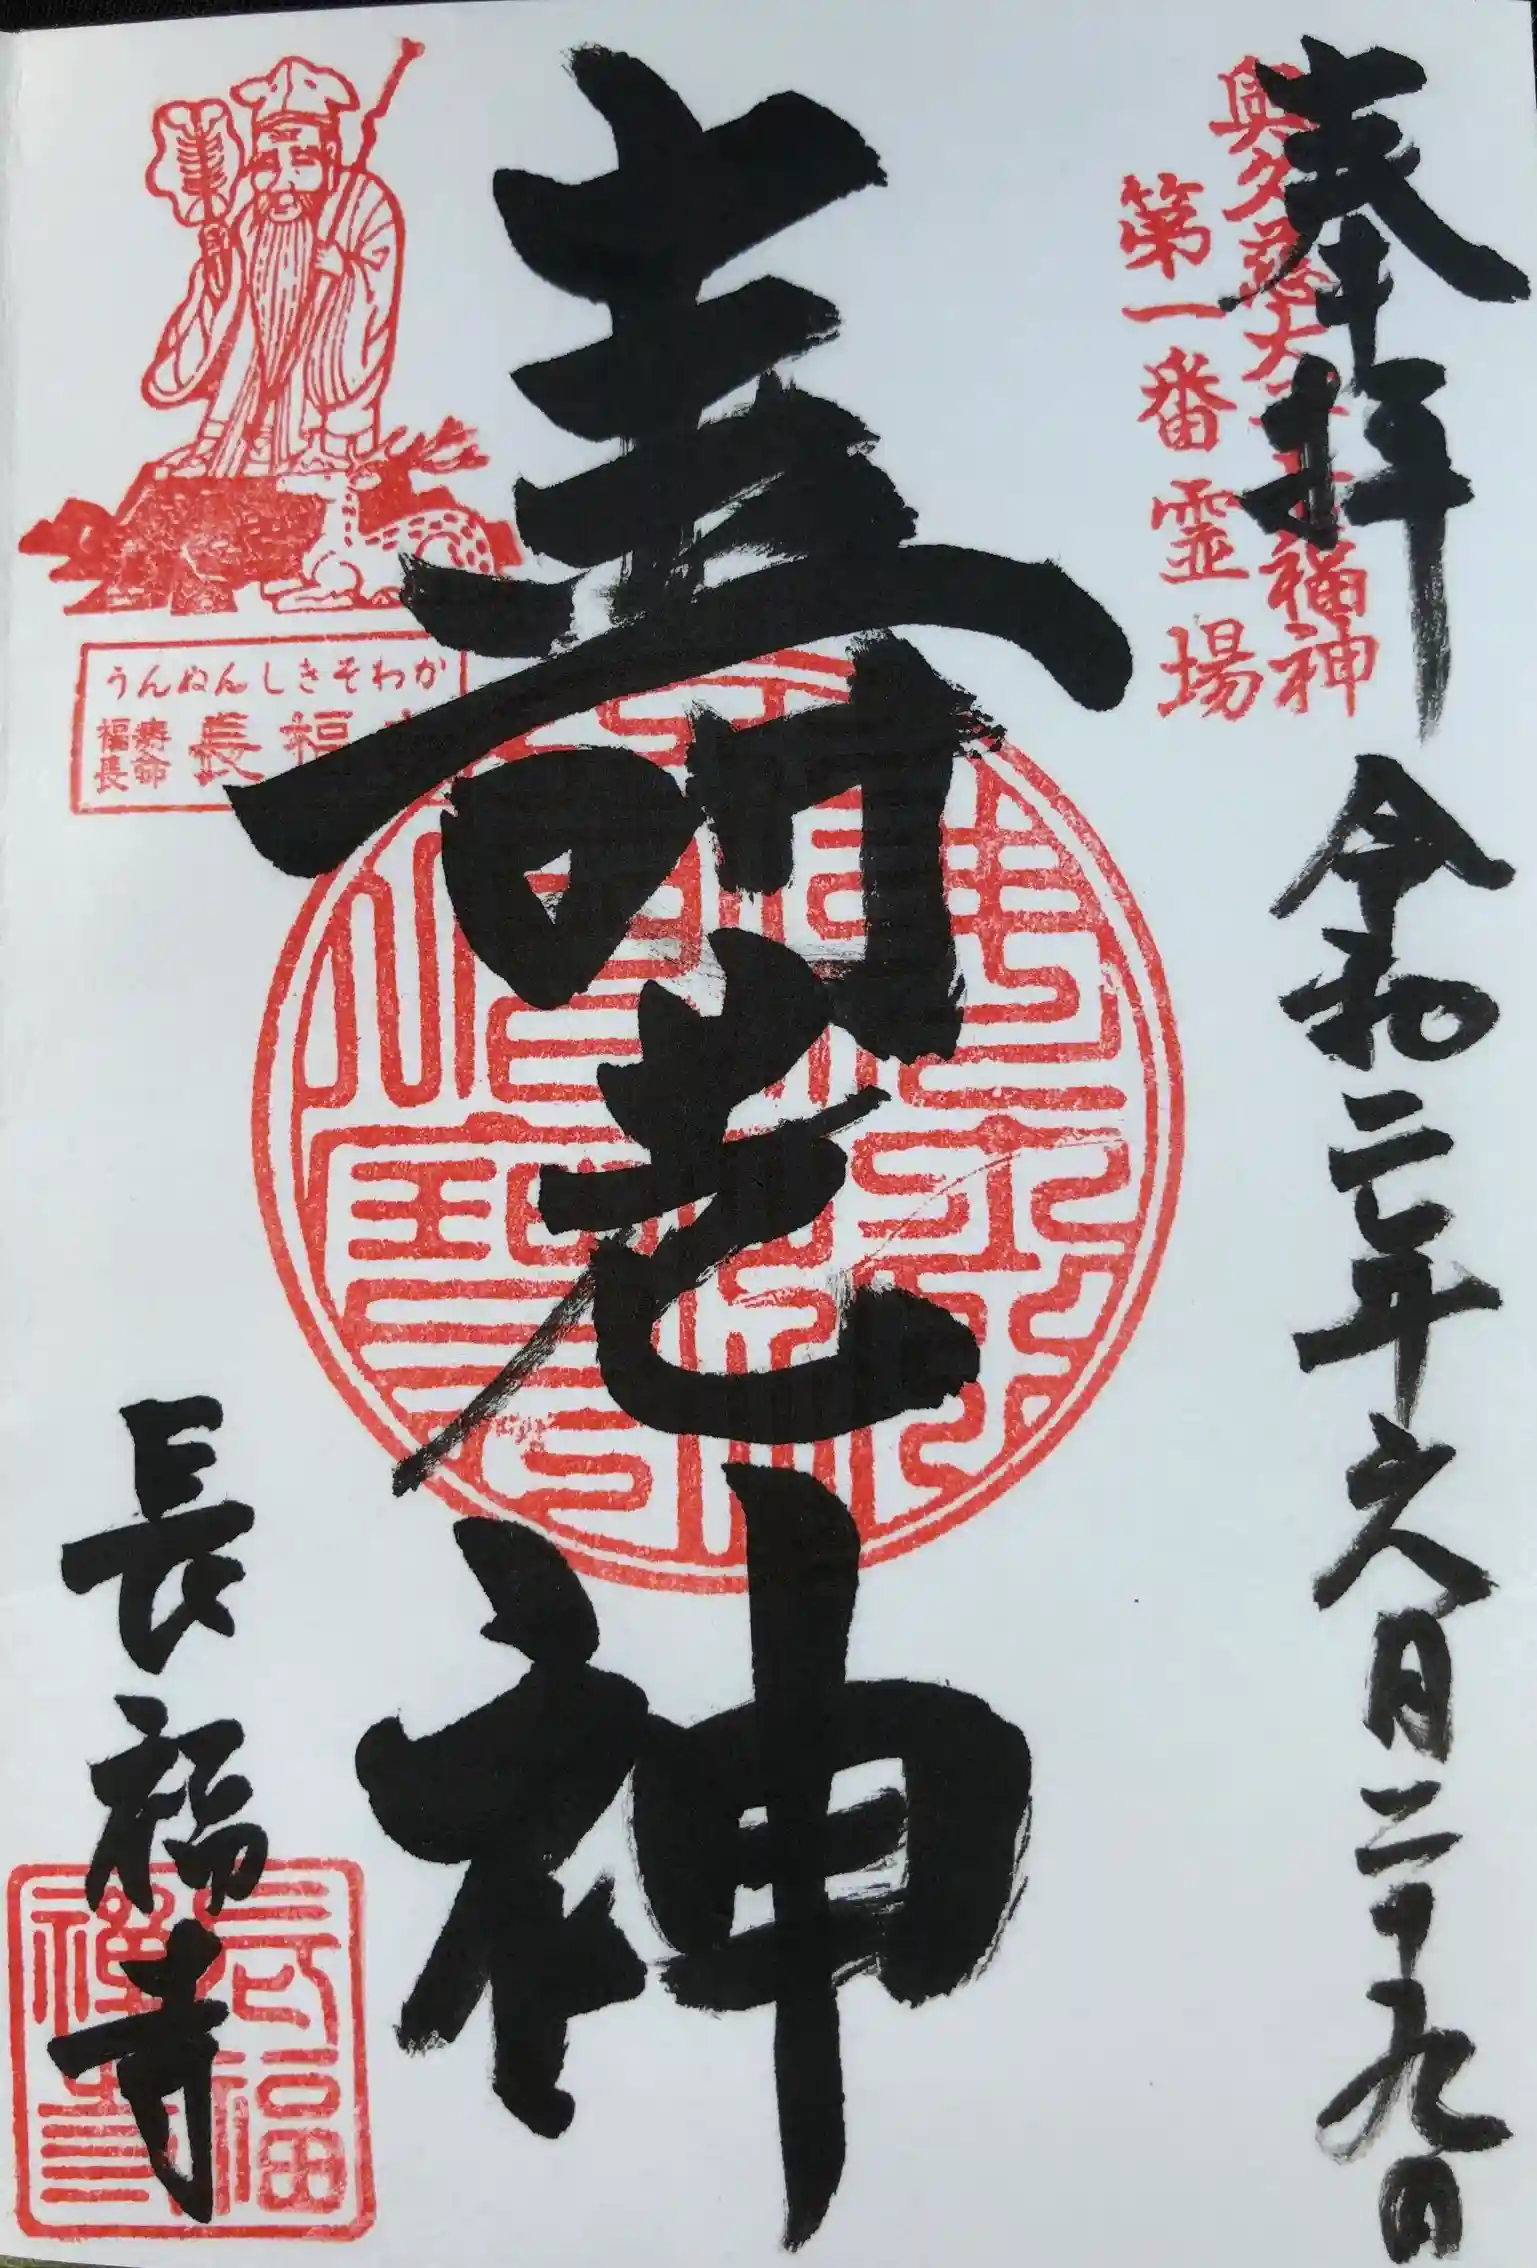 奉拝 令和二年六月二十九日
奥久慈大子七福神
第一番霊場
壽老神
うんぬんしきそわか
寿命
福長
長福寺
長福寺